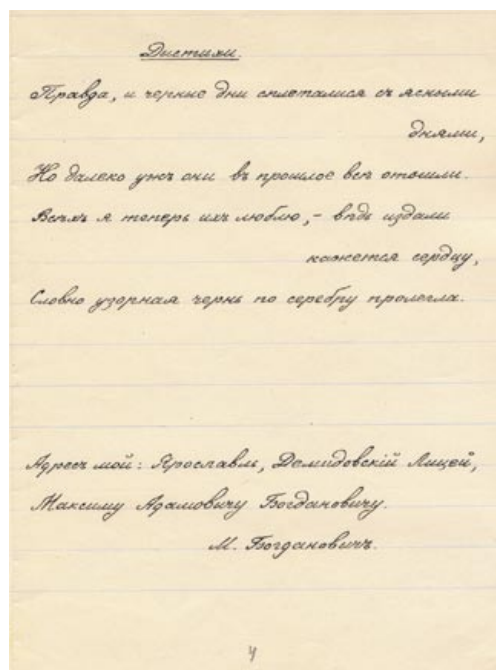 Дистихи.
Правда, и черные дни сплеталися съ ясными
днями,
Но далеко ужъ они въ прошлое всѣ отошли.
Всѣхъ я теперь ихъ люблю, – вѣдь издали
кажется сердцу,
Словно узорная чернь по серебру пролегла.
Адресъ мой: Ярославль, Демидовскій Лицей,
Максиму Адамовичу Богдановичу.
М. Богдановичъ.
4